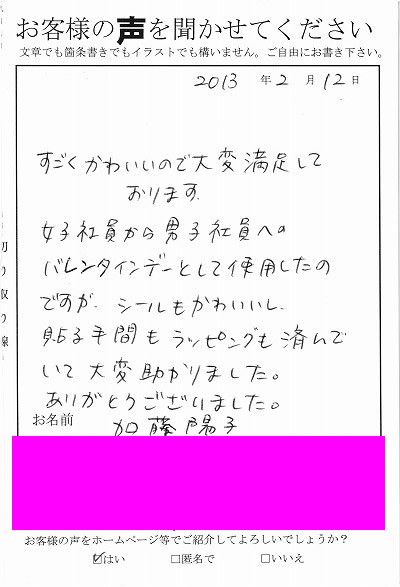 お客様の声を聞かせてください
文章でも箇条書きでもイラストでも構いません。ご自由にお書き下さい。
2013 年 2 月 12 日
すごくかわいいので大変満足して
おります
女子社員から男子社員への
バレンタインデーとして使用したの
ですが、シールもかわいいし、
貼る手間もラッピングも済んで
いて大変助かりました。
ありがとうございました。
お名前
加藤陽子
切り取り線
お客様の声をホームページ等でご紹介してよろしいでしょうか？
☑はい □匿名で □いいえ